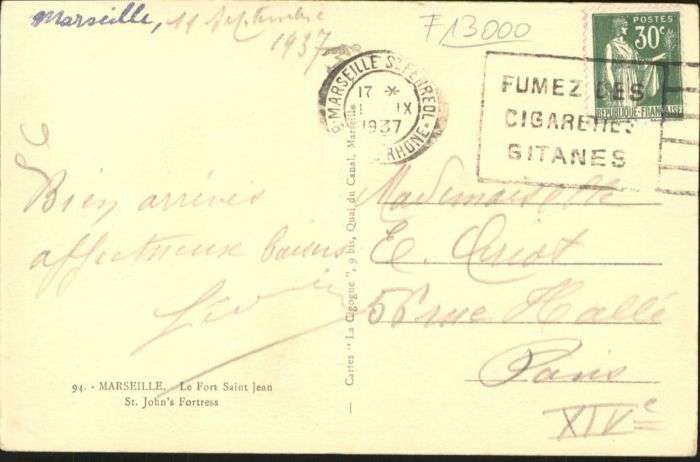 Marseille, 11 Septembre
1937
F13000
POSTES
30c
REPUBLIQUE FRANÇAISE
MARSEILLE St FERREOL
17 *
1 IX
1937
B. DU RHONE
FUMEZ LES
CIGARETTES
GITANES
Bien arrivés
affectueux baisers
Mademoiselle
E.
56 rue Hallé
Paris
XIVe
Cartes "La Cigogne", 9 bis, Quai du Canal, Marseille
94. - MARSEILLE. Le Fort Saint Jean
St. John's Fortress